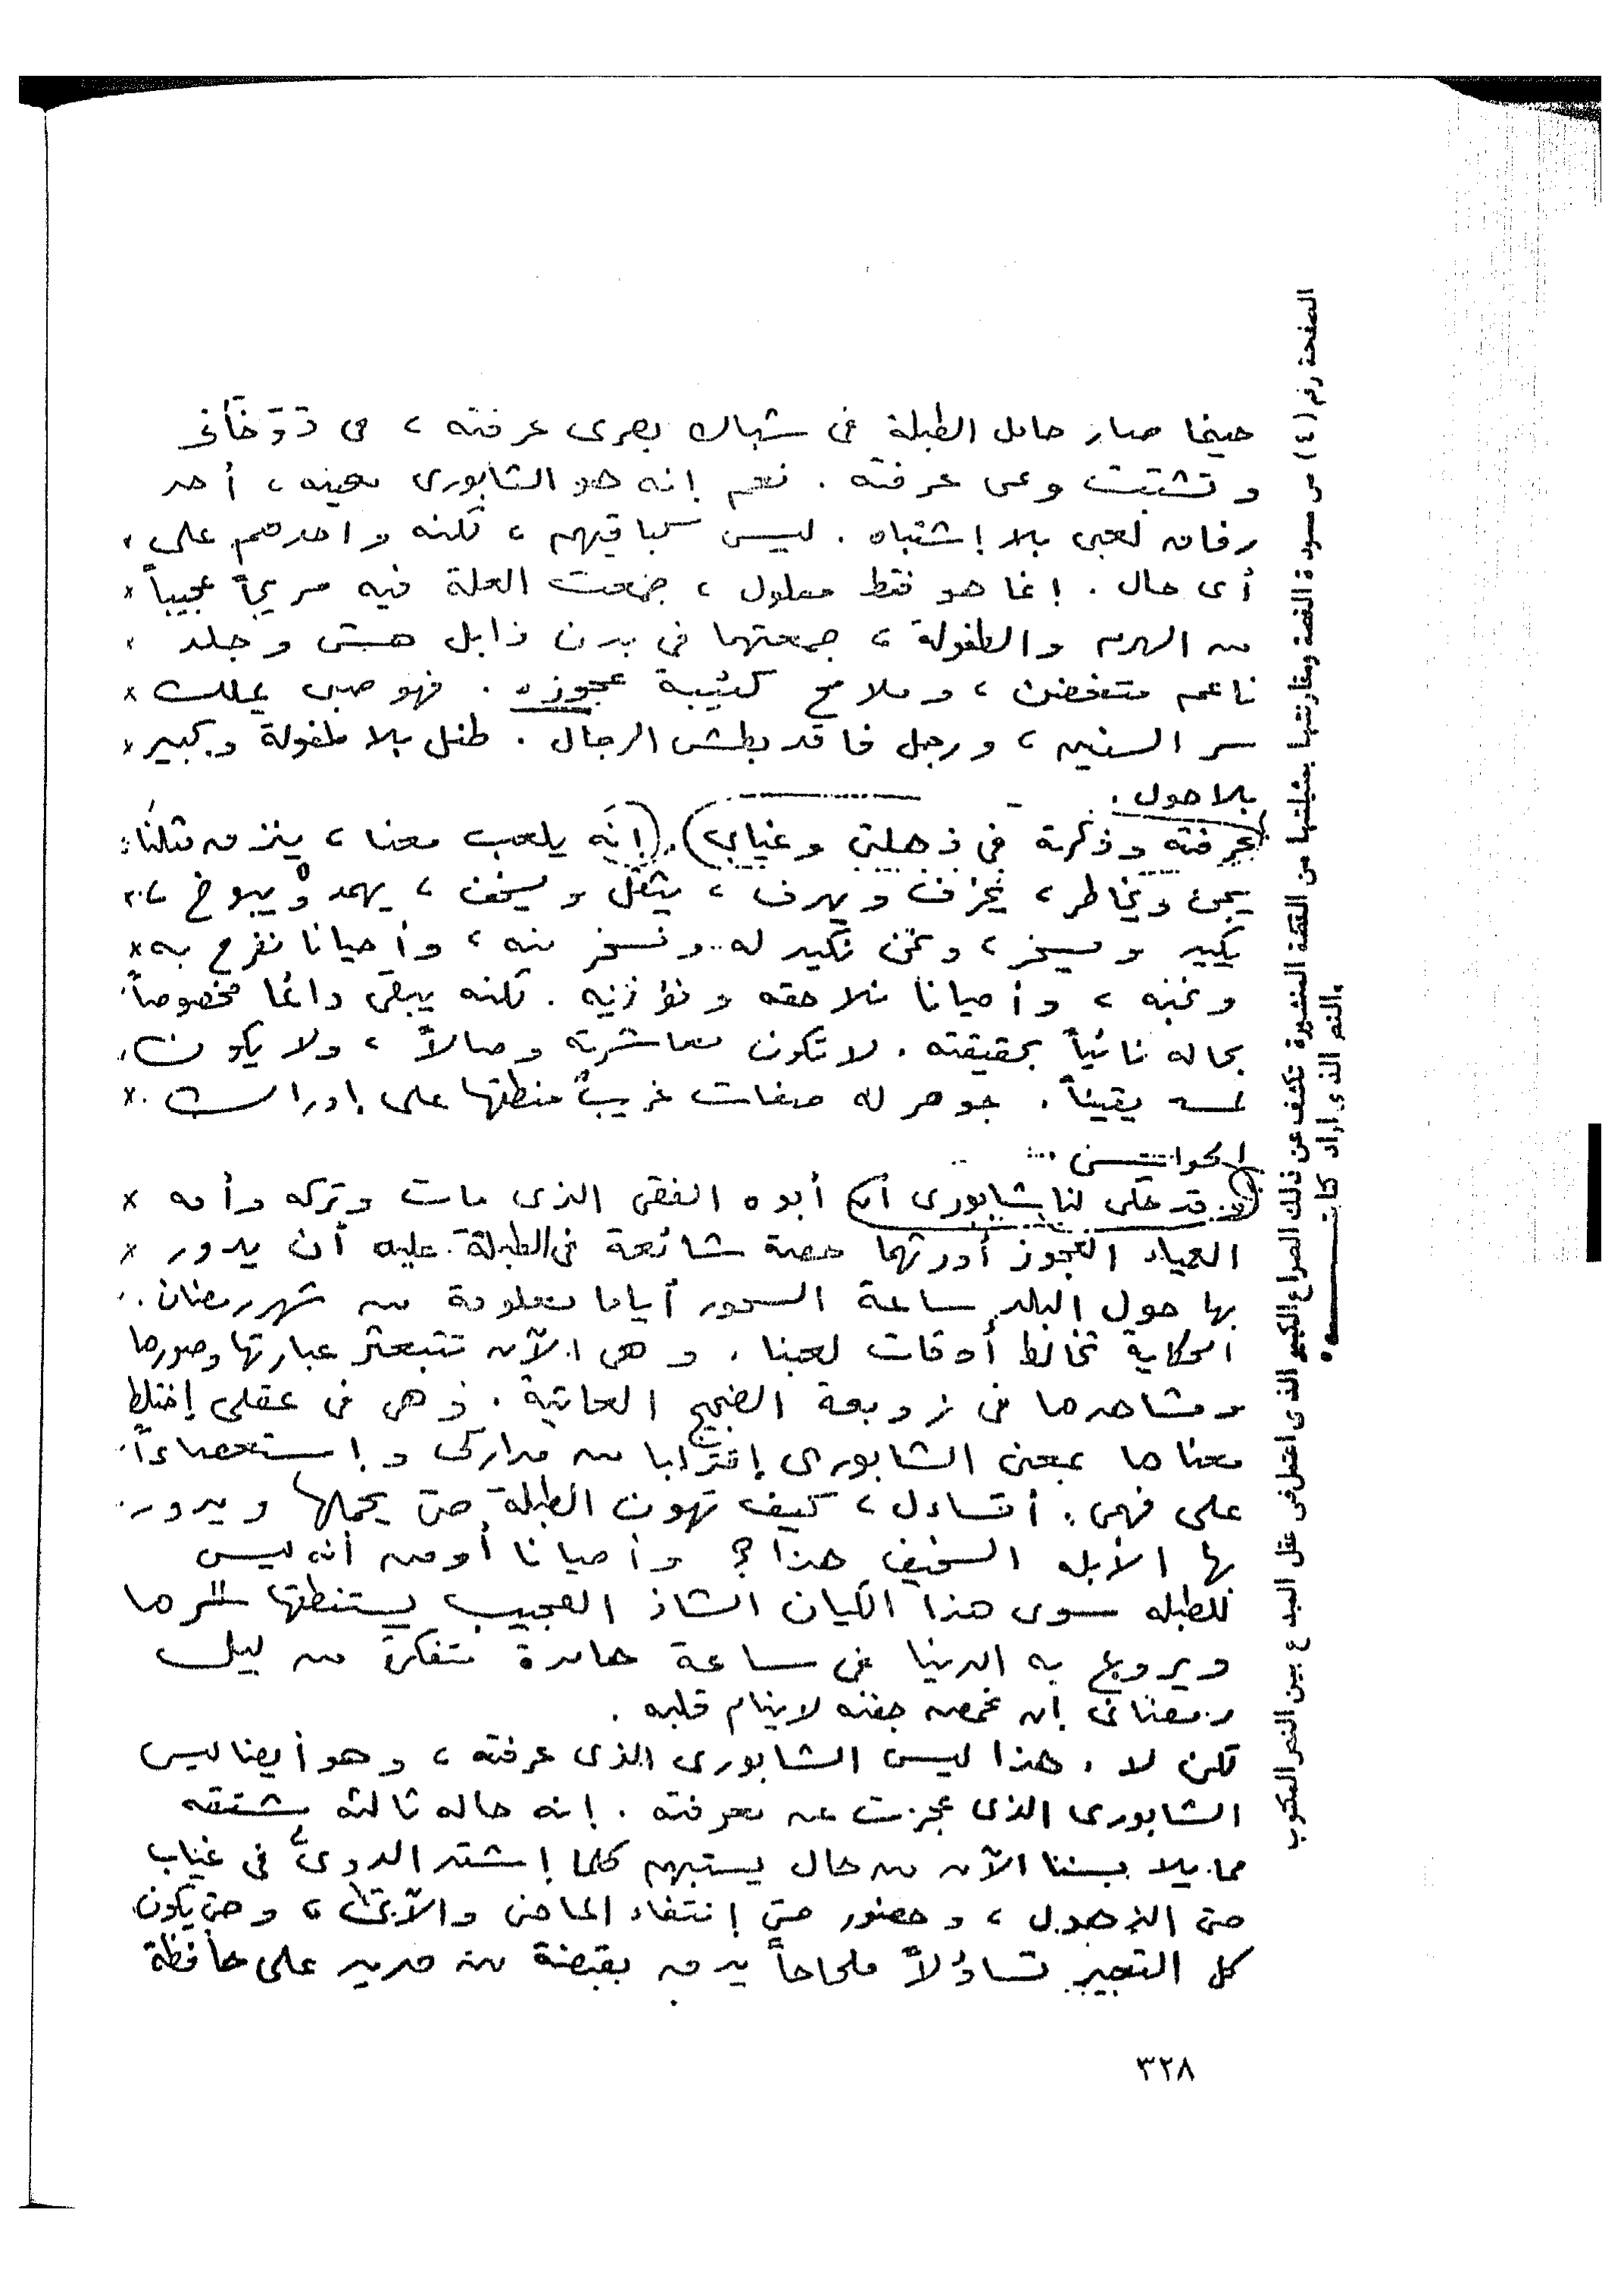 حينما صار حامل الطبلة فى شباك بصرى عرفته ، فى
وتشتت وعى عرفته . نعم إنه هو الشابورى بعينه ، أحد
رفاق لعبى بلا إشتباه . ليس كباقيهم ، لكنه واحدهم على
أى حال . إنما هو فقط معلول ، جمعت العلة فيه مزيجاً عجيباً
من الهرم والطفولة ، جمعتهما فى بدن ذابل هش وجلد
ناعم متغضن ، وملامح كئيبة عجوزه . فهو صبى يملك
سر السنين ، ورجل فاقد بطش الرجال . طفل بلا طفولة وكبير
بلا حول .
عرفته وذكرته فى ذهلتى وغيابى . (إنه يلعب معنا ، ينزق مثلنا
يجبن ويخاطر ، يخرف ويهرف ، يثقل ويسخف ، يهمد ويبوخ ،
يكيد ويسخر ، ونحن نكيد له ونسخر منه ، وأحيانا نفرح به
ونحبه ، وأحيانا نلاحقه ونؤذيه . لكنه يبقى دائما مخصوصاً
بحاله نائياً بحقيقته . لا تكون معاشرته وصالاً ، ولا يكون
لمسه يقيناً . جوهر له صفات غريبٌ منطقها على إدراك
الحواس
قد حكى لنا شابورى أن أبوه الفقى الذى مات وتركه وأمه
العمياء العجوز أورثهما حصة شائعة فى الطبلة . عليه أن يدور
بها حول البلد ساعة السحور أياما معلومة من شهر رمضان .
الحكاية تخالط أوقات لعبنا . وهى الآن تتبعثر عبارتها وصورها
ومشاهدها فى زوبعة الضجيج العاتية . وهى فى عقلى إختلط
معناها بمعنى الشابورى إقترابا من مداركى وإستعصاءاً
على فهمى . أتساءل ، كيف تهون الطبلة حتى يحملها ويدور
بها الأبله السخيف هذا ؟ وأحيانا أومن أنه ليس
للطبله سوى هذا الكيان الشاذ العجيب يستنطقها سرها
ويروع به الدنيا فى ساعة هامدة متفكرة من ليل
رمضانى إن غمض جفنه لا ينام قلبه .
لكن لا . هذا ليس الشابورى الذى عرفته ، وهو أيضا ليس
الشابورى الذى عجزت عن معرفته . إنه حاله ثالثه مشتقه
مما يلابسنا الآن من حال يستبهم كلما إشتد الدوىّ فى غياب
حتى الذهول ، وحضور حتى إنتفاء الماضى والآتى ، وحتى يكون
كل التعبير تساؤلاً ملحاحاً يدق بقبضة من حديد على حافظة
٣٢٨
الصفحة رقم (٤) من مسودة القصة ومقارنتها بمثيلتها من القصة المنشورة تكشف عن ذلك الصراع الكبير الذى اعتمل فى عقل المبدع بين النص المكتوب
والنص الذى اراد كتابته